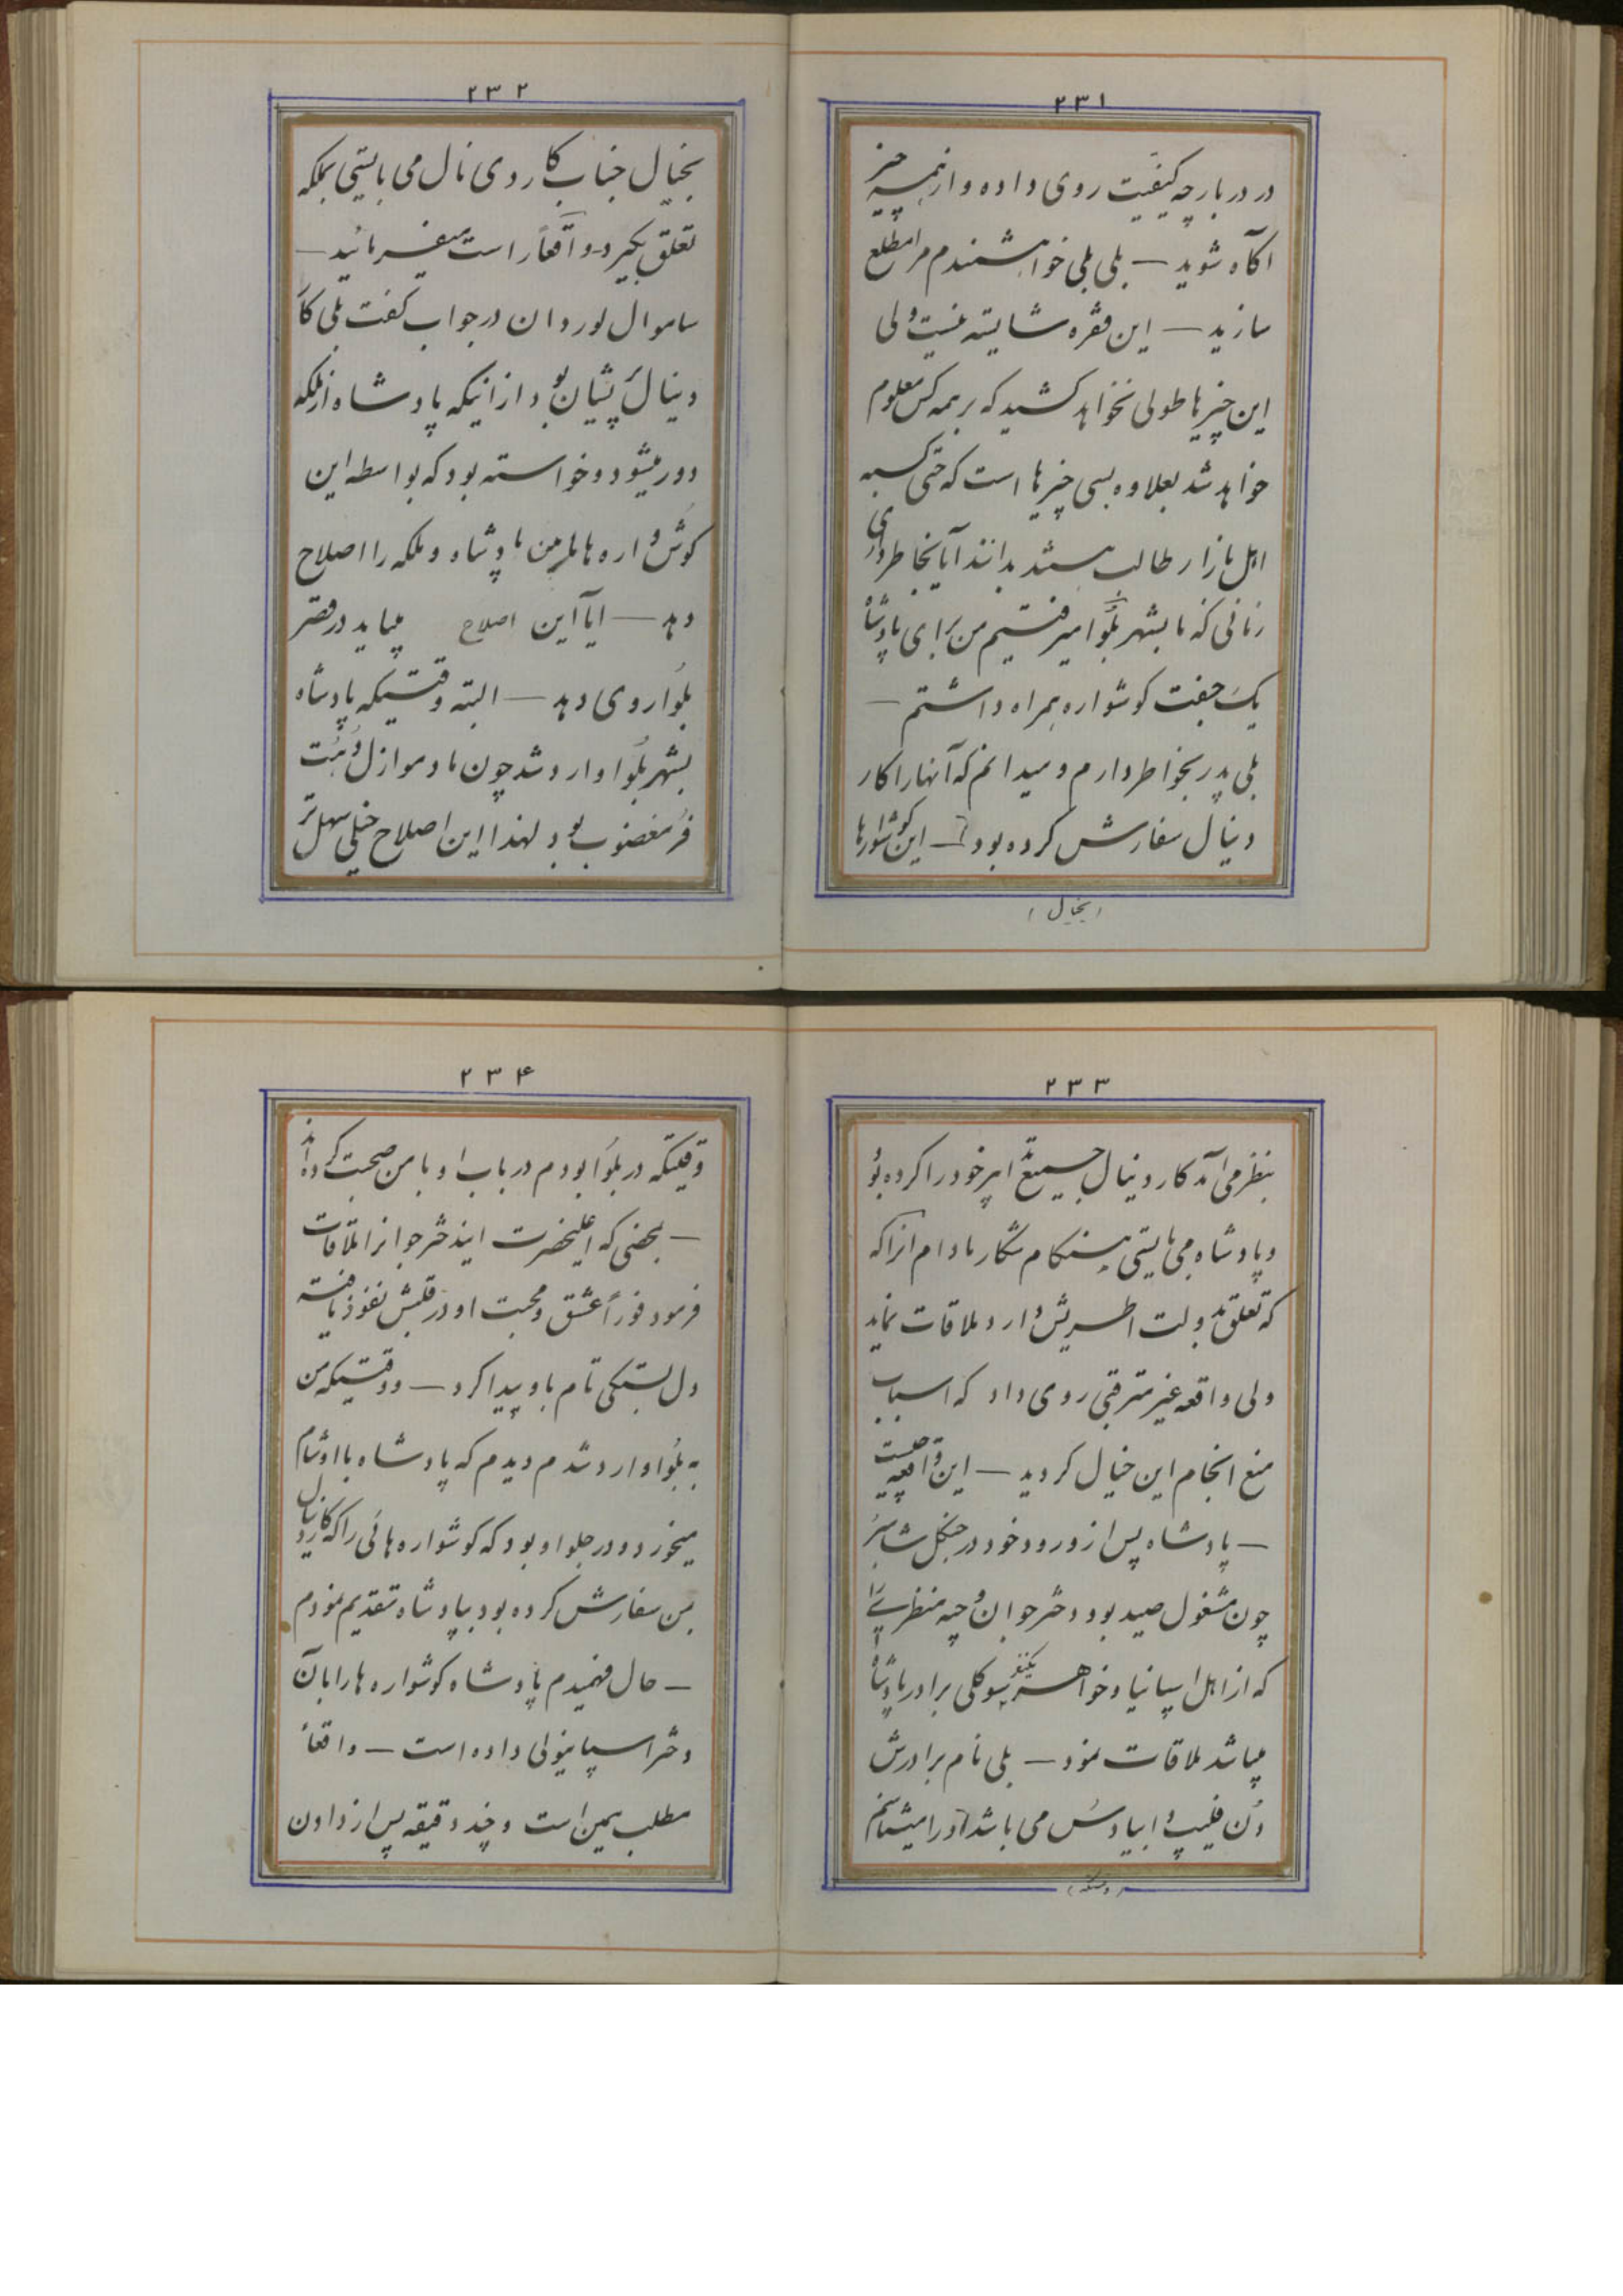 ۲۳۱
در دربار چه کیفیت روی داده و از همه چیز
آگاه شوید — بلی بلی خواهشمندم مرا مطلع
سازید — این فقره شایسته نیست ولی
این چیزها طولی نخواهد کشید که بر همه کس معلوم
خواهد شد بعلاوه بسی چیزها است که حتی کسبه
اهل بازار طالب هستند بدانند آیا بخاطر داری
زمانی که ما بشهر بلوا میرفتیم من برای پادشاه
یک جفت گوشواره همراه داشتم —
بلی پدر بخواطر دارم و میدانم که آنها را کار
دینال سفارش کرده بود — این گوشوارها
(بخیال)
۲۳۲
بخیال جناب کاردی نال می بایستی بملکه
تعلق بگیرد و واقعاً راست میفرمائید —
ساموال لوردان در جواب گفت بلی کار
دینال پشیمان بود از اینکه پادشاه از ملکه
دور میشود و خواسته بود که بواسطه این
گوشواره ها مابین پادشاه و ملکه را اصلاح
دهد — آیا این اصلاح میباید در قصر
بلوا روی دهد — البته وقتیکه پادشاه
بشهر بلوا وارد شد چون مادموازل
مغضوب بود لهذا این اصلاح خیلی سهل تر
۲۳۳
بنظر می آمد کاردینال جمیع تدابیر خود را کرده بود
و پادشاه می بایستی هنگام شکار مادام انرا که
که تعلق بدولت اطریش دارد ملاقات نماید
ولی واقعه غیر مترقبی روی داد که اسباب
منع انجام این خیال گردید — این واقعه چیست
— پادشاه پس از ورود خود در جنگل شامبر
چون مشغول صید بود دختر جوان وجیه منظری را
که از اهل اسپانیا و خواهر یکنفر سوگلی برادر پادشاه
میباشد ملاقات نمود — بلی نام برادرش
دن فلیپ دابیادس می باشد او را میشناسم
(وقتیکه)
۲۳۴
وقتیکه در بلوا بودم در باب او با من صحبت کرده اند
— بمحضی که اعلیحضرت ایندختر جوانرا ملاقات
فرمود فوراً عشق و محبت او در قلبش نفوذ یافته
دل بستگی تام باو پیدا کرد — و وقتیکه من
به بلوا وارد شدم دیدم که پادشاه با او شام
میخورد و در جلو او بود که گوشواره هائی را که کاردینال
بمن سفارش کرده بود بپادشاه تقدیم نمودم
— حال فهمیدم پادشاه گوشواره ها را بآن
دختر اسپانیولی داده است — واقعاً
مطلب همین است و چند دقیقه پس از دادن